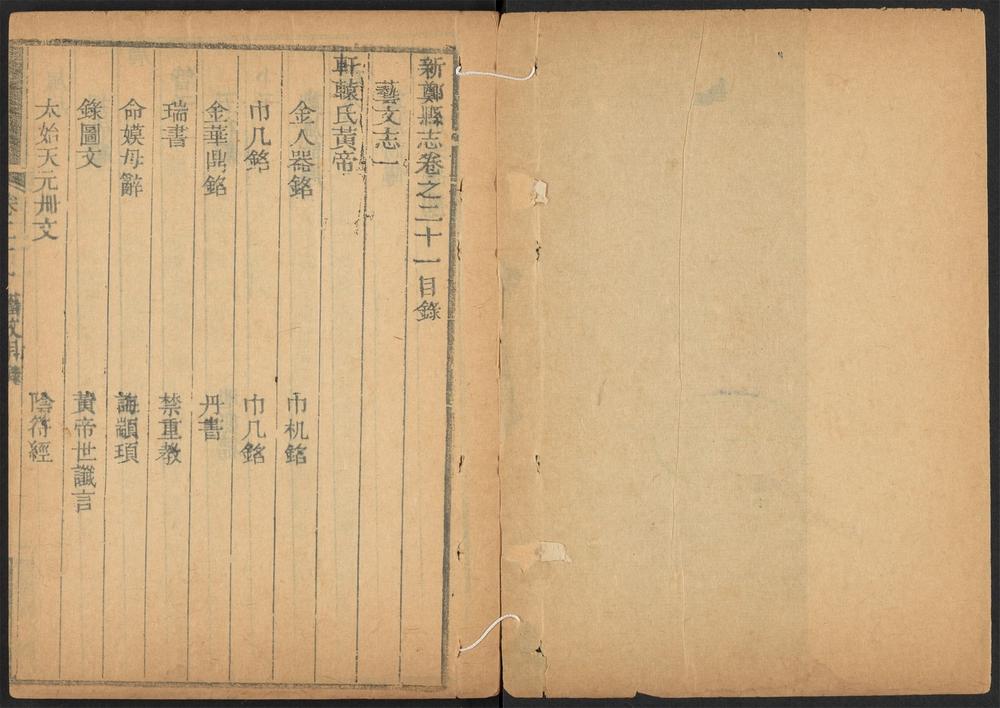 新鄭縣志卷之二十一目錄
藝文志一
軒轅氏黃帝
金人器銘
巾机銘
巾几銘
巾几銘
金華鼎銘
丹書
瑞書
禁重教
命嫫母辭
誨顓頊
錄圖文
黃帝世讖言
太始天元冊文
陰符經